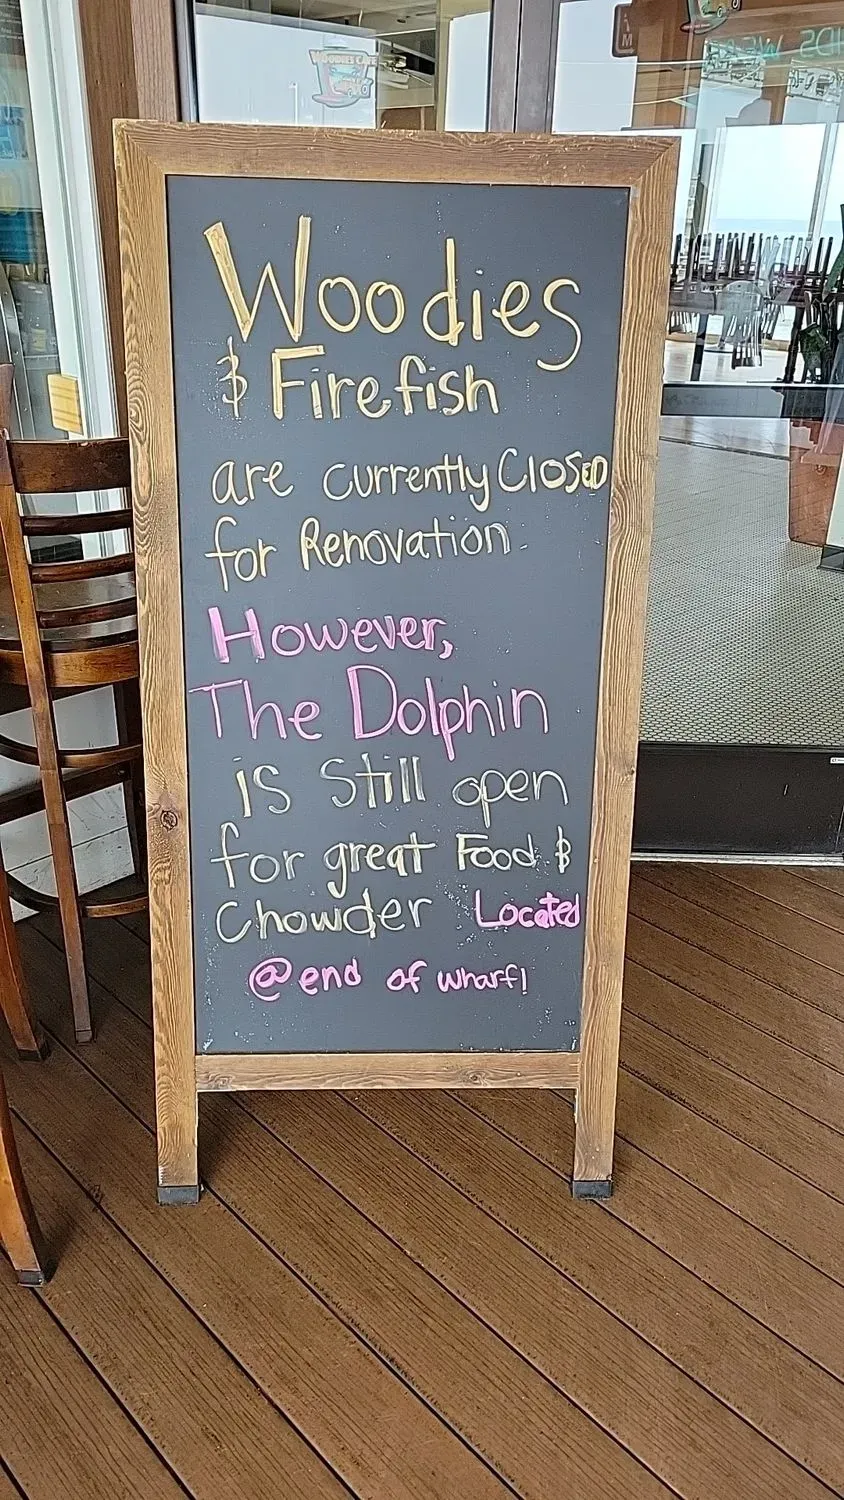 WOODIES CAFE
Woodies
& Firefish
are currently Closed
for Renovation
However,
The Dolphin
is still open
for great Food &
Chowder Located
@ end of wharf!